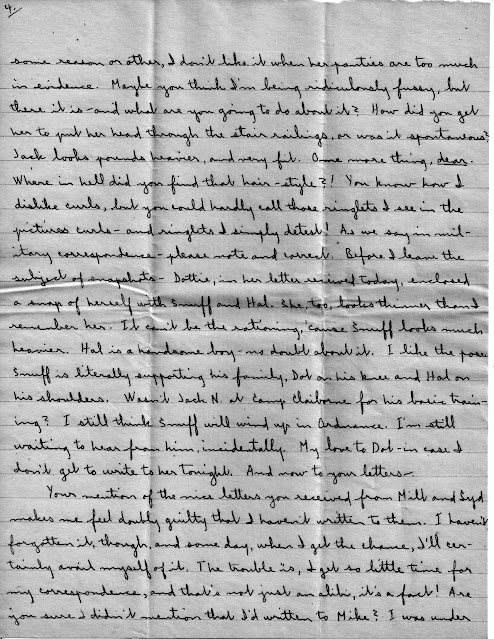 4.
some reason or other, I don't like it when her panties are too much
in evidence. Maybe you think I'm being ridiculously fussy, but
there it is - and what are you going to do about it? How did you get
her to put her head through the stair railings, or was it spontaneous?
Jack looks pounds heavier, and very fit. One more thing, dear.
Where in hell did you find that hair-style?! You know how I
dislike curls, but you could hardly call those ringlets I see in the
pictures curls - and ringlets I simply detest! As we say in mil-
itary correspondence - please note and correct. Before I leave the
subject of snapshots - Dottie, in her letter received today, enclosed
a snap of herself with Snuff and Hal. She, too, looks thinner than I
remember her. It can't be the rationing, 'cause Snuff looks much
heavier. Hal is a handsome boy - no doubt about it. I like the pose.
Snuff is literally supporting his family, Dot on his knee and Hal on
his shoulders. Wasn't Jack N. at Camp Claiborne for his basic train-
ing? I still think Snuff will wind up in Ordnance. I'm still
waiting to hear from him, incidentally. My love to Dot - in case I
don't get to write to her tonight. And now to your letters -
Your mention of the nice letters you received from Milt and Syd
makes me feel doubly guilty that I haven't written to them. I haven't
forgotten it, though, and some day, when I get the chance, I'll cer-
tainly avail myself of it. The trouble is, I get so little time for
my correspondence, and that's not just an alibi, it's a fact! Are
you sure I didn't mention that I'd written to Mike? I was under